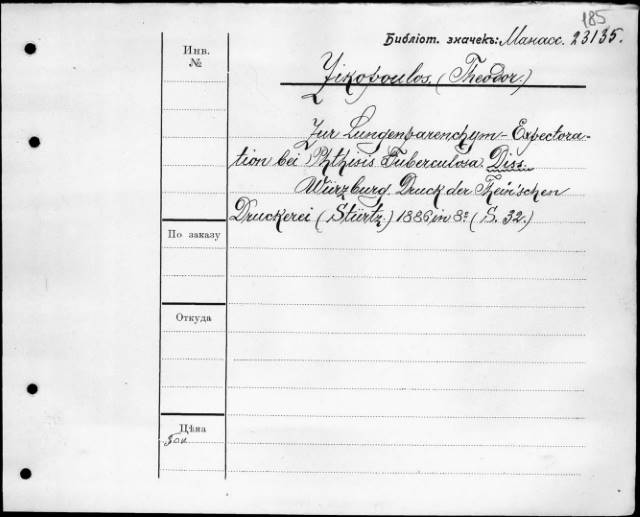 185
Библіот. значекъ: Манасс. 23135.
Инв.
№
Zikopoulos, (Theodor.)
Zur Lungenparenchym-Expectora-
tion bei Phthisis Tuberculosa. Diss.
Würzburg. Druck der Thein'schen
Druckerei (Stürtz.) 1886 in 8º (S. 32.)
По заказу
Откуда
Цѣна
50к